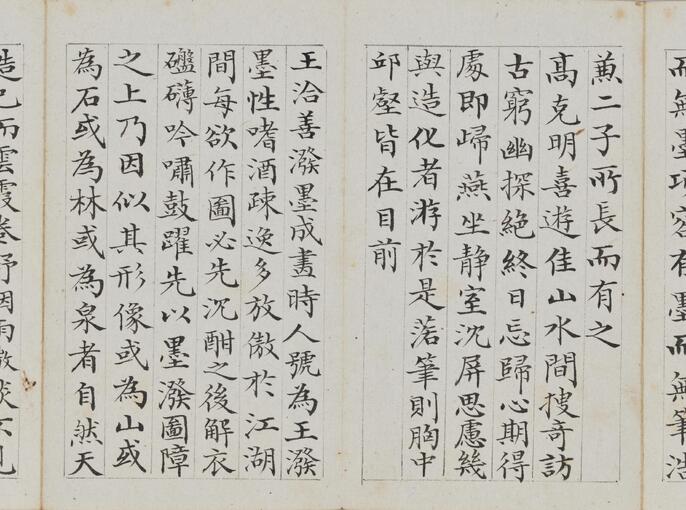 而無墨項容有墨而無筆浩
兼二子所長而有之
高克明喜遊佳山水間搜奇訪
古窮幽探絕終日忘歸心期得
處即歸燕坐靜室沈屏思慮幾
與造化者游於是落筆則胸中
邱壑皆在目前
王洽善潑墨成畫時人號為王潑
墨性嗜酒疎逸多放傲於江湖
間每欲作圖必先沉酣之後解衣
礛礴吟嘯鼓躍先以墨潑圖障
之上乃因似其形像或為山或
為石或為林或為泉者自然天
造已而雲霞卷舒雨淡不見